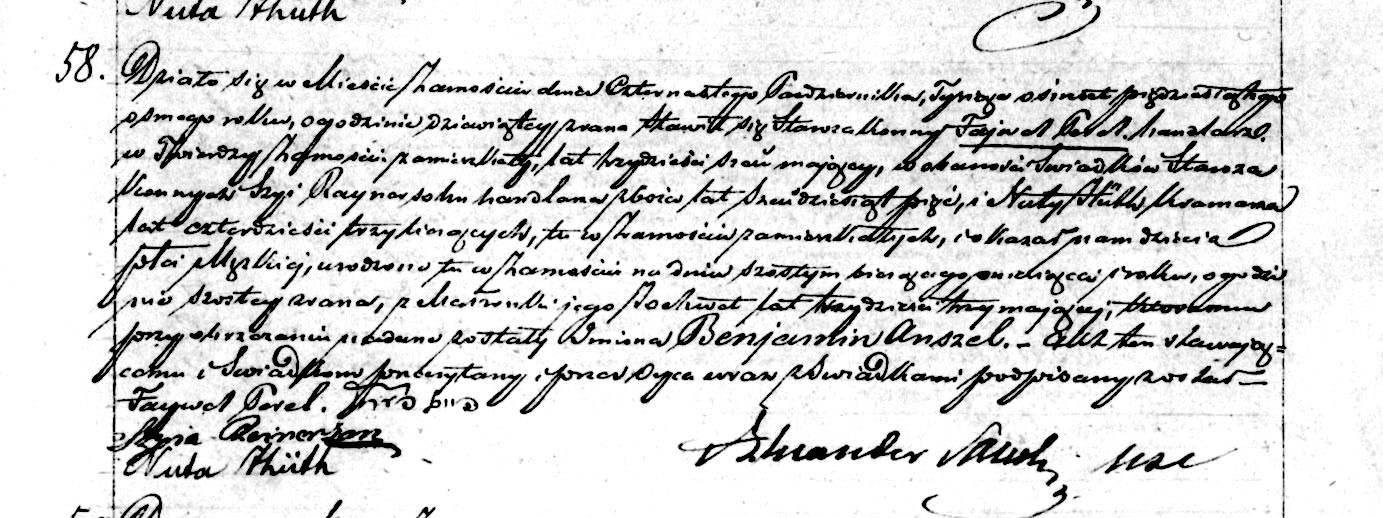 Nuta Hüth
58. Działo się w Mieście Zamościu dnia Czternastego Października, Tysiąc osimset pięćdziesiątego
osmego roku, o godzinie dziewiątej zrana stawił się Starozakonny Fajwel Perel handlarz
w Twierdzy Zamościu zamieszkały, lat trzydzieści mający, w obecności Świadków Staroza
konnych Szyi Raynersohn handlarza zboża lat sześćdziesiąt pięć, i Nuty Hüth Kramarza
lat czterdzieści trzy liczących, tu w Zamościu zamieszkałych, i okazał nam dziecię
płci Męzkiej, urodzone tu w Zamościu na dniu szostym bieżącego miesiąca i roku, o godzi
nie szostej zrana, z Małżonki jego lat trzydzieści trzy mającej, któremu
przy obrzezaniu nadane zostały Imiona Benjamin Anszel. – Akt ten stawają=
cemu i Świadkom przeczytany, i przez Ojca wraz z Świadkami podpisany został —
Faywel Perel.
Szyia Reinerzon
Nuta Hüth